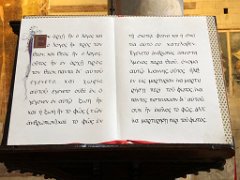 ἀρχῇ ἦν ὁ λόγος καὶ
ὁ λόγος ἦν πρὸς τὸν
θεὸν καὶ θεὸς ἦν ὁ λόγος
οὗτος ἦν ἐν ἀρχῇ πρὸς
τὸν θεόν πάντα δι' αὐτοῦ
ἐγένετο καὶ χωρὶς
αὐτοῦ ἐγένετο οὐδὲ ἕν ὃ
γέγονεν ἐν αὐτῷ ζωὴ ἦν
καὶ ἡ ζωὴ ἦν τὸ φῶς τῶν
ἀνθρώπων καὶ τὸ φῶς ἐν
τῇ σκοτίᾳ φαίνει καὶ ἡ σκο
τία αὐτὸ οὐ κατέλαβεν
Ἐγένετο ἄνθρωπος ἀπεσταλ
μένος παρὰ θεοῦ ὄνομα
αὐτῷ Ἰωάννης οὗτος ἦλθεν
εἰς μαρτυρίαν ἵνα μαρτυ
ρήσῃ περὶ τοῦ φωτός ἵνα
πάντες πιστεύσωσιν δι' αὐτοῦ
οὐκ ἦν ἐκεῖνος τὸ φῶς ἀλλ'
ἵνα μαρτυρήσῃ περὶ τοῦ φωτός